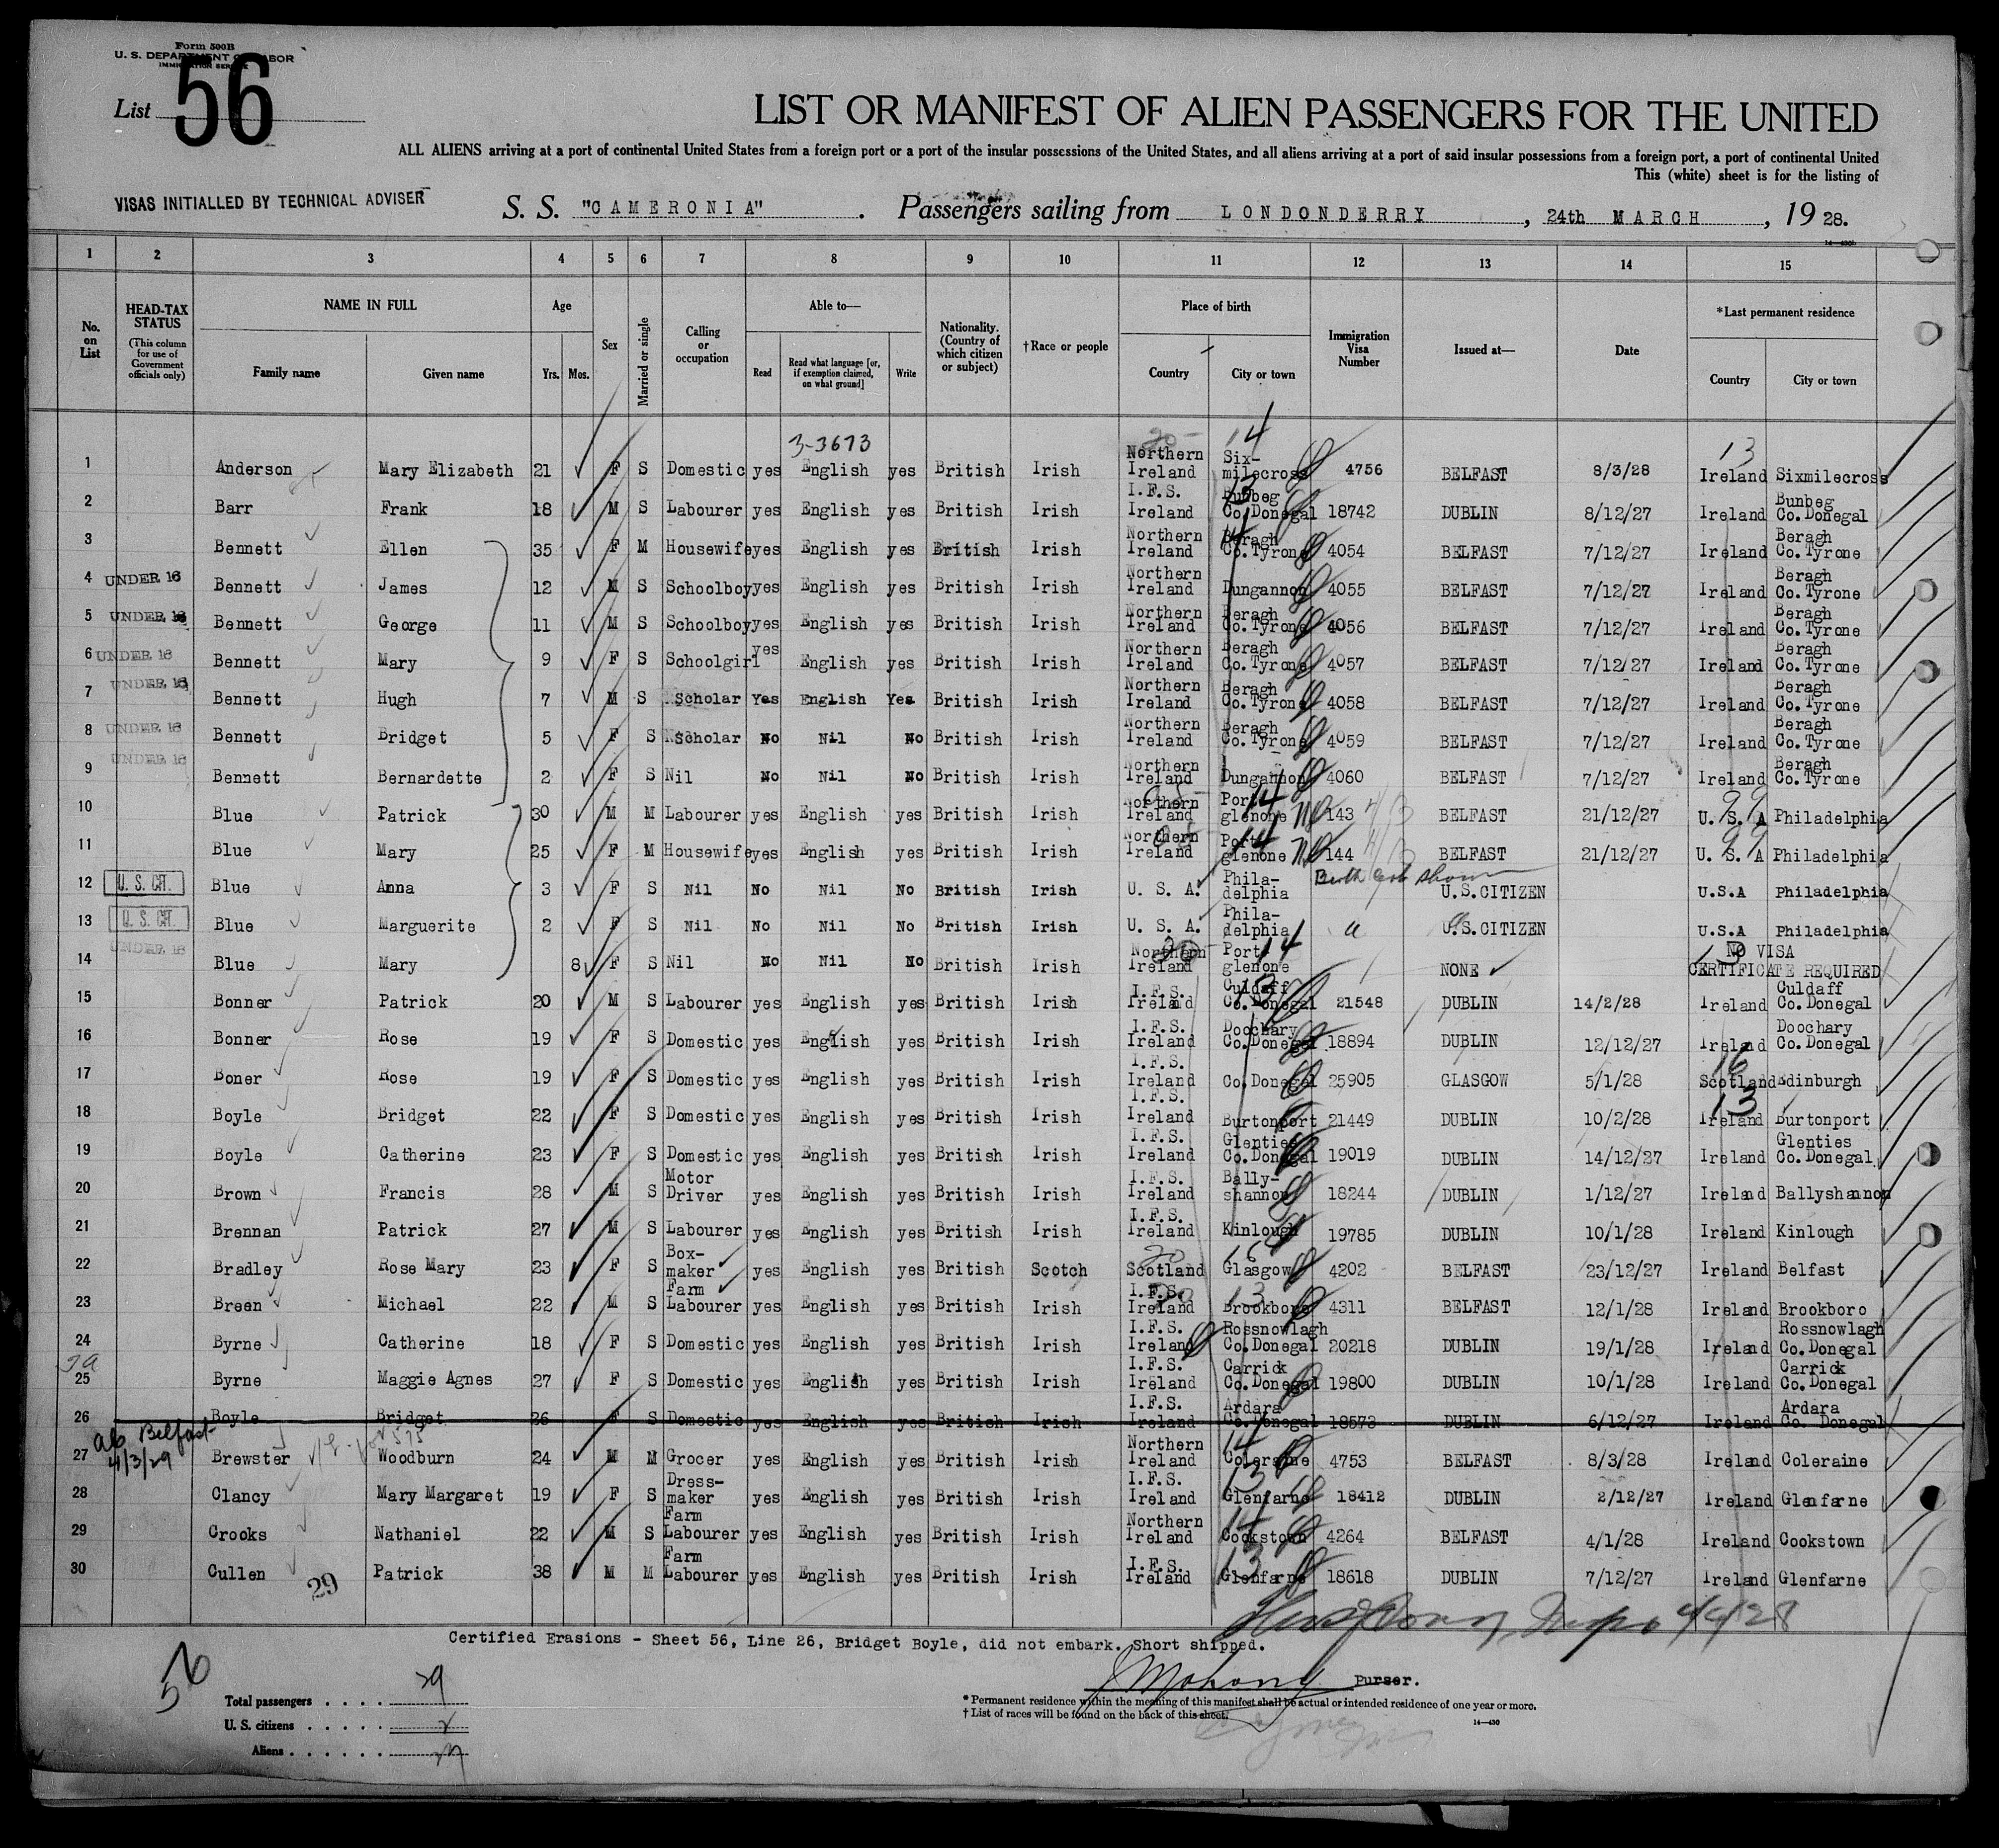 Form 500B
U. S. DEPARTMENT OF LABOR
IMMIGRATION SERVICE
List 56
LIST OR MANIFEST OF ALIEN PASSENGERS FOR THE UNITED
ALL ALIENS arriving at a port of continental United States from a foreign port or a port of the insular possessions of the United States, and all aliens arriving at a port of said insular possessions from a foreign port, a port of continental United
This (white) sheet is for the listing of
VISAS INITIALLED BY TECHNICAL ADVISER
S. S. "CAMERONIA". Passengers sailing from LONDONDERRY, 24th MARCH, 1928.
1 2 3 4 5 6 7 8 9 10 11 12 13 14 15
No. on List
HEAD-TAX STATUS (This column for use of Government officials only)
NAME IN FULL Family name Given name
Age Yrs. Mos.
Sex
Married or single
Calling or occupation
Able to— Read Read what language [or, if exemption claimed, on what ground] Write
Nationality. (Country of which citizen or subject)
†Race or people
Place of birth Country City or town
Immigration Visa Number
Issued at—
Date
*Last permanent residence Country City or town
3-3673
1 Anderson Mary Elizabeth 21 F S Domestic yes English yes British Irish Northern Ireland Six-milecross 4756 BELFAST 8/3/28 Ireland Sixmilecross
2 Barr Frank 18 M S Labourer yes English yes British Irish I.F.S. Ireland Bunbeg Co. Donegal 18742 DUBLIN 8/12/27 Ireland Bunbeg Co. Donegal
3 Bennett Ellen 35 F M Housewife yes English yes British Irish Northern Ireland Beragh Co. Tyrone 4054 BELFAST 7/12/27 Ireland Beragh Co. Tyrone
4 UNDER 16 Bennett James 12 M S Schoolboy yes English yes British Irish Northern Ireland Dungannon 4055 BELFAST 7/12/27 Ireland Beragh Co. Tyrone
5 UNDER 16 Bennett George 11 M S Schoolboy yes English yes British Irish Northern Ireland Beragh Co. Tyrone 4056 BELFAST 7/12/27 Ireland Beragh Co. Tyrone
6 UNDER 16 Bennett Mary 9 F S Schoolgirl yes English yes British Irish Northern Ireland Beragh Co. Tyrone 4057 BELFAST 7/12/27 Ireland Beragh Co. Tyrone
7 UNDER 16 Bennett Hugh 7 M S Scholar Yes English Yes British Irish Northern Ireland Beragh Co. Tyrone 4058 BELFAST 7/12/27 Ireland Beragh Co. Tyrone
8 UNDER 16 Bennett Bridget 5 F S Scholar No Nil No British Irish Northern Ireland Beragh Co. Tyrone 4059 BELFAST 7/12/27 Ireland Beragh Co. Tyrone
9 UNDER 16 Bennett Bernardette 2 F S Nil No Nil No British Irish Northern Ireland Dungannon 4060 BELFAST 7/12/27 Ireland Beragh Co. Tyrone
10 Blue Patrick 30 M M Labourer yes English yes British Irish Northern Ireland Port-glenone 143 BELFAST 21/12/27 U. S. A Philadelphia
11 Blue Mary 25 F M Housewife yes English yes British Irish Northern Ireland Port-glenone 144 BELFAST 21/12/27 U. S. A Philadelphia
12 U. S. CIT. Blue Anna 3 F S Nil No Nil No British Irish U. S. A. Phila-delphia Birth Cert shown U.S.CITIZEN U.S.A Philadelphia
13 U. S. CIT. Blue Marguerite 2 F S Nil No Nil No British Irish U. S. A. Phila-delphia U.S.CITIZEN U.S.A Philadelphia
14 UNDER 16 Blue Mary 8 F S Nil No Nil No British Irish Northern Ireland Port-glenone NONE NO VISA CERTIFICATE REQUIRED
15 Bonner Patrick 20 M S Labourer yes English yes British Irish I.F.S. Ireland Culdaff Co. Donegal 21548 DUBLIN 14/2/28 Ireland Culdaff Co. Donegal
16 Bonner Rose 19 F S Domestic yes English yes British Irish I.F.S. Ireland Doochary Co. Donegal 18894 DUBLIN 12/12/27 Ireland Doochary Co. Donegal
17 Boner Rose 19 F S Domestic yes English yes British Irish I.F.S. Ireland Co. Donegal 25905 GLASGOW 5/1/28 Scotland Edinburgh
18 Boyle Bridget 22 F S Domestic yes English yes British Irish I.F.S. Ireland Burtonport 21449 DUBLIN 10/2/28 Ireland Burtonport
19 Boyle Catherine 23 F S Domestic yes English yes British Irish I.F.S. Ireland Glenties Co. Donegal 19019 DUBLIN 14/12/27 Ireland Glenties Co. Donegal
20 Brown Francis 28 M S Motor Driver yes English yes British Irish I.F.S. Ireland Bally-shannon 18244 DUBLIN 1/12/27 Ireland Ballyshannon
21 Brennan Patrick 27 M S Labourer yes English yes British Irish I.F.S. Ireland Kinlough 19785 DUBLIN 10/1/28 Ireland Kinlough
22 Bradley Rose Mary 23 F S Box-maker yes English yes British Scotch Scotland Glasgow 4202 BELFAST 23/12/27 Ireland Belfast
23 Breen Michael 22 M S Farm Labourer yes English yes British Irish I.F.S. Ireland Brookboro 4311 BELFAST 12/1/28 Ireland Brookboro
24 Byrne Catherine 18 F S Domestic yes English yes British Irish I.F.S. Ireland Rossnowlagh Co. Donegal 20218 DUBLIN 19/1/28 Ireland Rossnowlagh Co. Donegal
25 Byrne Maggie Agnes 27 F S Domestic yes English yes British Irish I.F.S. Ireland Carrick Co. Donegal 19800 DUBLIN 10/1/28 Ireland Carrick Co. Donegal
26 Boyle Bridget 26 F S Domestic yes English yes British Irish I.F.S. Ireland Ardara Co. Donegal 18573 DUBLIN 6/12/27 Ireland Ardara Co. Donegal
27 Brewster Woodburn 24 M M Grocer yes English yes British Irish Northern Ireland Coleraine 4753 BELFAST 8/3/28 Ireland Coleraine
28 Clancy Mary Margaret 19 F S Dress-maker yes English yes British Irish I.F.S. Ireland Glenfarne 18412 DUBLIN 2/12/27 Ireland Glenfarne
29 Crooks Nathaniel 22 M S Farm Labourer yes English yes British Irish Northern Ireland Cookstown 4264 BELFAST 4/1/28 Ireland Cookstown
30 Cullen Patrick 38 M M Farm Labourer yes English yes British Irish I.F.S. Ireland Glenfarne 18618 DUBLIN 7/12/27 Ireland Glenfarne
29
4/4/28
Certified Erasions - Sheet 56, Line 26, Bridget Boyle, did not embark. Short shipped.
J Mahony Purser.
56
Total passengers . . . . 29
U. S. citizens . . . . . 2
Aliens . . . . . . 27
* Permanent residence within the meaning of this manifest shall be actual or intended residence of one year or more.
† List of races will be found on the back of this sheet.
14—430